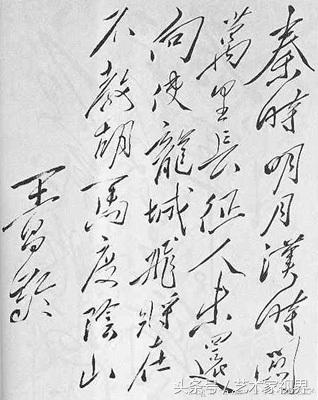 秦時明月漢時關
萬里長征人未還
向使龍城飛將在
不教胡馬度陰山
王昌齡
头条号/艺术家视界